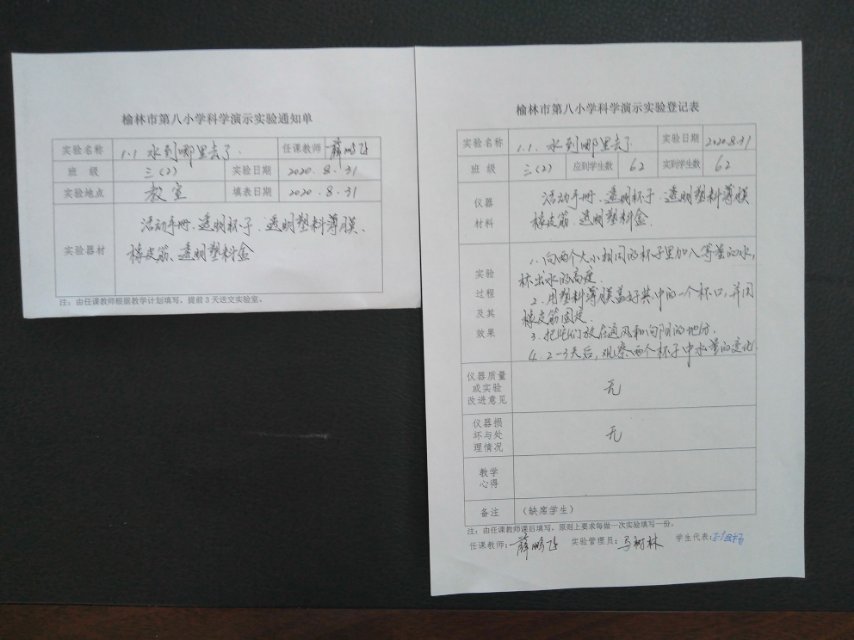 榆林市第八小学科学演示实验通知单
实验名称 1.1 水到哪里去了. 任课教师 薛鹏飞
班 级 三(2) 实验日期 2020.8.31
实验地点 教室 填表日期 2020.8.31
实验器材
活动手册、透明杯子、透明塑料薄膜、
橡皮筋、透明塑料盒
注：由任课教师根据教学计划填写，提前3天送交实验室。
榆林市第八小学科学演示实验登记表
实验名称 1.1. 水到哪里去了 实验日期 2020.8.31
班 级 三(2) 应到学生数 62 实到学生数 62
仪器
材料
活动手册、透明杯子、透明塑料薄膜
橡皮筋、透明塑料盒.
实验
过程
及其
效果
1. 向两个大小相同的杯子里加入等量的水,
标出水的高度.
2. 用塑料薄膜盖好其中的一个杯口, 并用
橡皮筋固定.
3. 把它们放在通风和向阳的地方.
4. 2-3天后, 观察两个杯子中水量的变化.
仪器质量
或实验
改进意见
无
仪器损
坏与处
理情况
无
教学
心得
备注 （缺席学生）
注：由任课教师课后填写，原则上要求每做一次实验填写一份。
任课教师: 薛鹏飞 实验管理员: 马树林 学生代表: